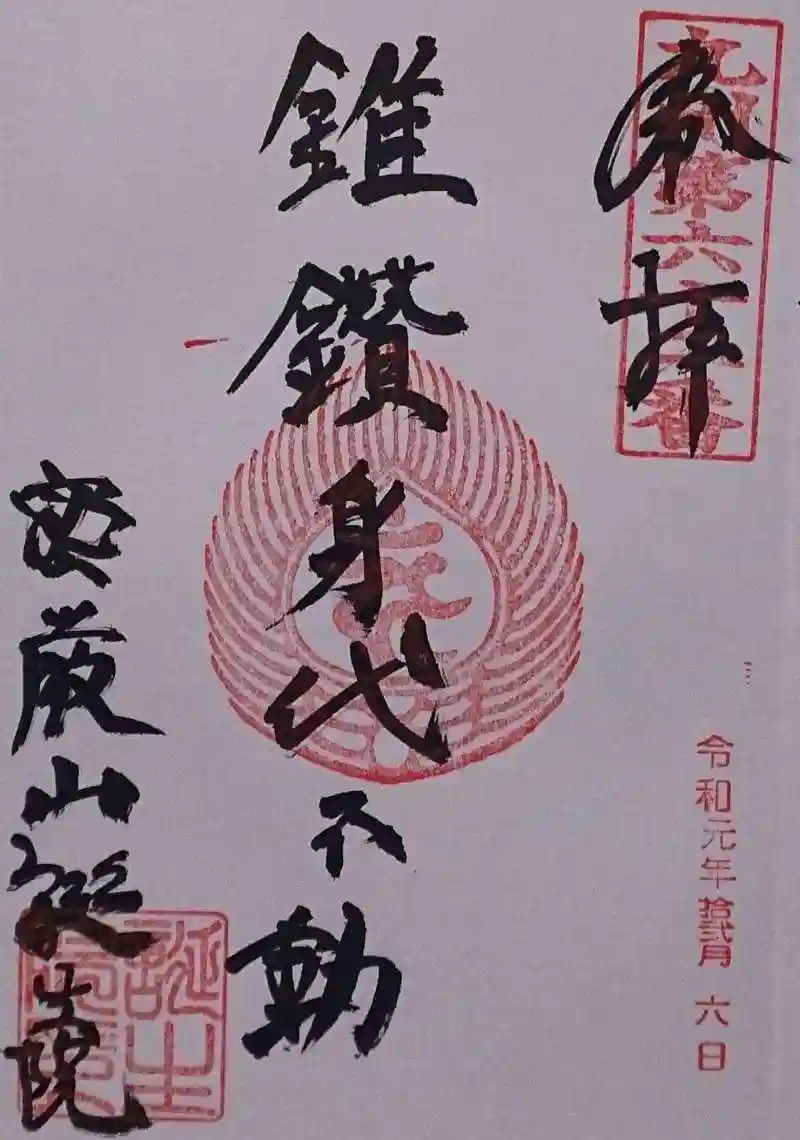 奉拝
九州第六十二番
令和元年拾弐月六日
錐鑽身代不動
密厳山誕生院
誕生院